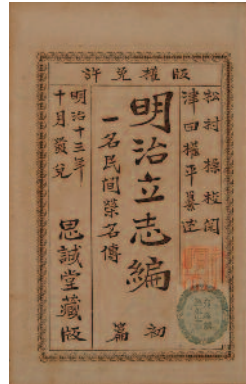 版權免許
松村操校閲
津田權平纂述
明治立志編
一名民間榮名傳
初篇
明治十三年
十月發兌
思誠堂藏版